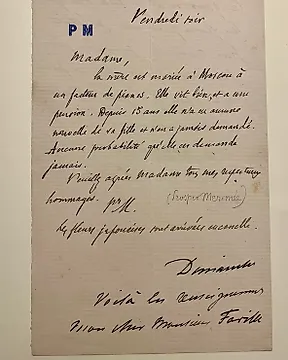 Vendredi soir
P M
Madame,
La mère est mariée à Moscou à
un facteur de pianos. Elle vit bien et a une
pension. Depuis 15 ans elle n'a eu aucune
nouvelle de sa fille et n'en a jamais demandé.
Aucune probabilité qu'elle en demande
jamais.
Veuillez agréer Madame tous mes respectueux
hommages.
Pr M.
(Prosper Merimée)
Les fleurs japonaises sont arrivées
Dimanche
Voilà les renseignements
mon cher Monsieur